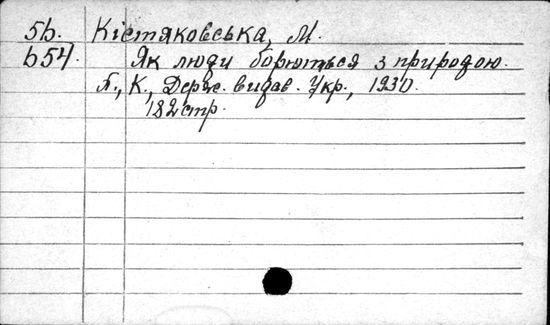 5b. Кістяковська, М.
b54. Як люди борються з природою.
Х., К., Держ. видав. Укр., 1930.
182 стр.